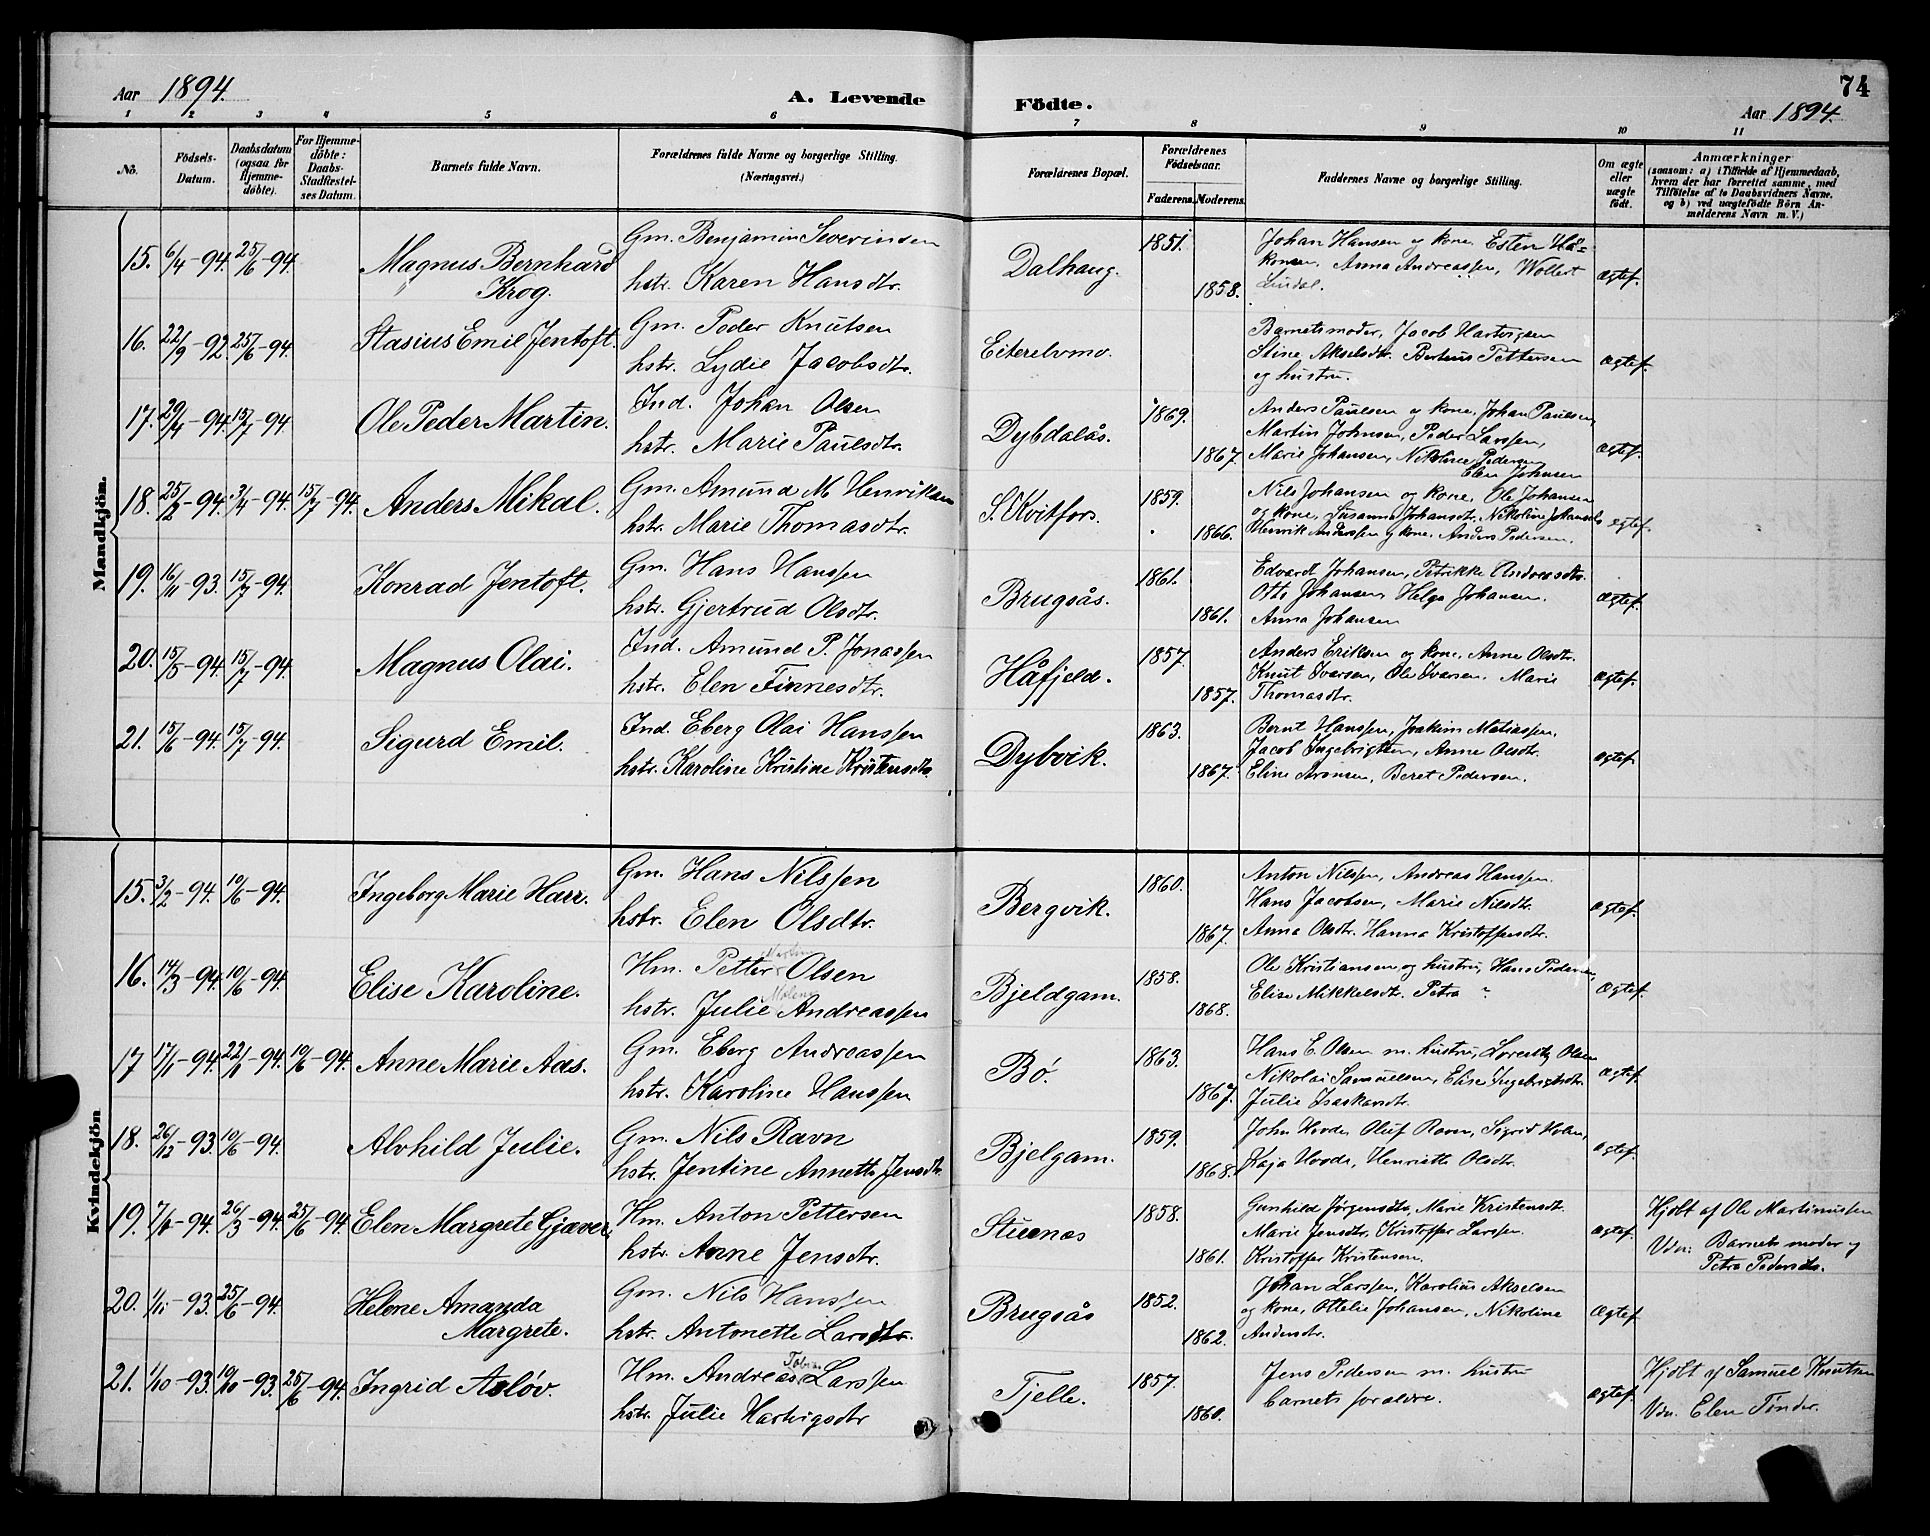 Aar 1894.
A. Levende Födte.
74
Aar 1894.
1 2 3 4 5 6 7 8 9 10 11
No.
Födsels-
Datum.
Daabsdatum
(ogsaa for
Hjemme-
döbte).
For Hjemme-
döbte:
Daabs-
Stadfæstel-
ses Datum.
Barnets fulde Navn.
Forældrenes fulde Navne og borgerlige Stilling.
(Næringsvei.)
Forældrenes Bopæl.
Forældrenes
Födselsaar.
Faderens. Moderens.
Faddernes Navne og borgerlige Stilling.
Om ægte
eller
uægte
födt.
Anmærkninger
(saasom: a) i Tilfælde af Hjemmedaab,
hvem der har forrettet samme, med
Tilföielse af to Daabsvidners Navne,
og b) ved uægtefödte Börn An-
melderens Navn m. V.)
Mandkjön.
15. 6/4-94. 25/6-94. Magnus Bernhard
Krog.
Gm. Benjamin Severinsen
hstr. Karen Hansdtr.
Dalhaug.
1851.
1858.
Johan Hansen og kone. Esten Hå-
konsen, Anna Andreassen, Wollert
Lindal.
Ægtef.
16. 22/9-92. 25/6-94. Stasius Emil Jentoft.
Gm. Peder Knutsen
hstr. Lydie Jacobsdtr.
Eiterelvmo.
Barnets moder, Jacob Hartvigsen
Stine Akselsdtr. Berteus Pettersen
og hustru.
Ægtef.
17. 29/4-94. 15/7-94. Ole Peder Martin.
Ind. Johan Olsen
hstr. Marie Paulsdtr.
Dybdalås.
1869.
1867.
Anders Paulsen og kone, Johan Paulsen,
Martin Johnsen, Peder Larssen,
Marie Johansen, Nikoline Pedersen
Elen Johnsen
Ægtef.
18. 25/2-94. 3/4-94. 15/7-94. Anders Mikal.
Gm. Amund M Henriksen
hstr. Marie Thomasdtr.
S. Kvitfors.
1859.
1866.
Nils Johansen og kone, Ole Johansen
og kone, Susanna Johansdtr. Nikoline Johansdtr
Henrik Anderssen og kone. Anders Pedersen.
Ægtef.
19. 16/11-93. 15/7-94. Konrad Jentoft.
Gm. Hans Hanssen
hstr. Gjertrud Olsdtr.
Brugsås.
1861.
1861.
Edvard Johansen, Petrikke Andreasdtr.
Otto Johansen, Helga Johansen.
Anna Johansen
Ægtef.
20. 15/5-94. 15/7-94. Magnus Olai.
Ind. Amund P. Jonassen
hstr. Elen Finnesdtr.
Håfjeld.
1857.
1857.
Anders Eriksen og kone. Anne Olsdtr.
Knut Ivarsen, Ole Ivarsen. Marie
Thomasdtr.
Ægtef.
21. 15/6-94. 15/7-94. Sigurd Emil.
Ind. Eberg Olai Hanssen
hstr. Karoline Kristine Kristensdtr.
Dybvik.
1863.
1867.
Bernt Hanssen, Joakim Matiassen,
Jacob Ingebrigtsen, Anne Olsdtr.
Eline Aronsen, Beret Pedersen.
Ægtef.
Kvindekjön
15. 3/2-94. 10/6-94. Ingeborg Marie Harr.
Gm. Hans Nilssen
hstr. Elen Olsdtr.
Bergvik.
1860.
1867.
Anton Nilssen, Andreas Hanssen.
Hans Jacobsen, Marie Nilsdtr.
Anna Olsdtr. Hanna Kristoffersdtr.
Ægtef.
16. 14/3-94. 10/6-94. Elise Karoline.
Hm. Petter Martin Olsen
hstr. Julie Andreassen
Bjeldgam.
1858.
1868.
Ole Kristiansen og hustru, Hans Pedersen,
Elise Mikkelsdtr. Petra ?
Ægtef.
17 17/1-94. 22/1-94. 10/6-94. Anne Marie Aas.
Gm. Eberg Andreassen
hstr. Karoline Hanssen
Bö.
1863.
1867.
Hans E. Olsen m. hustru, Olsen
Nikolai Samuelsen, Elise Ingebrigtsdtr
Julie Isaksdtr.
Ægtef.
18. 26/12-93. 10/6-94. Alvhild Julie.
Gm. Nils Ravn
hstr. Jentine Annette Jensdtr.
Bjelgam.
1859.
1868.
John Hovde, Oluf Ravn, Sigrid Holm,
Kaja Hovde, Henriette Olsdtr.
Ægtef.
19. 7/1-94. 26/3-94. 25/6-94. Elen Margrete Gjæver.
Hm. Anton Pettersen
hstr. Anne Jensdtr.
Stuenes
1858.
1861.
Gunhilde Jørgensdtr, Marie Kristensdtr.
Marie Jensdtr, Kristoffer Larssen.
Kristoffer Kristensen.
Ægtef.
Hjdbt af Ole Martinussen
Vdn: Barnets moder og
Petra Pedersdtr.
20. 1/11-93. 25/6-94. Helene Amanda
Margrete.
Gm. Nils Hanssen
hstr. Antonette Larsdtr.
Brugsås
1852.
1862.
Johan Larssen, Karolius Akselsen
og kone, Ottelie Johansen, Nikoline
Andersdtr.
Ægtef.
21. 1/10-93. 19/10-93. 25/6-94. Ingrid Asløv.
Hm. Andreas Tobias Larssen
hstr. Julie Hartvigsdtr
Tjelle.
1857.
1860.
Jens Pedersen m. hustru
barnets foræeldre.
Ægtef.
Hjdbt af Samuel Knutsen
Vdn. Elen Tinder.